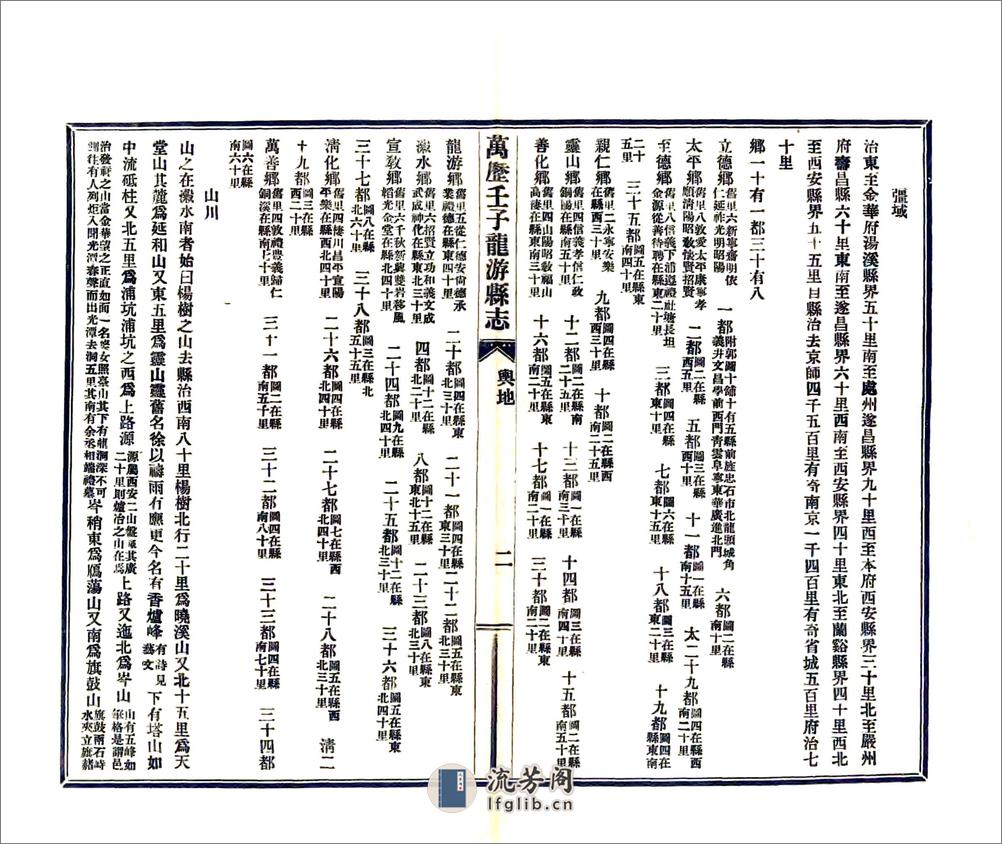 彊域
治東至金華府湯溪縣界五十里南至處州遂昌縣界九十里西至本府西安縣界三十里北至嚴州
府壽昌縣六十里東南至遂昌縣界六十里西南至西安縣界四十里東北至蘭谿縣界四十里西北
至西安縣界五十五里自縣治去京師四千五百里有奇南京一千四百里有奇省城五百里府治七
十里
鄉一十有一都三十有八
立德鄉舊里六新寧齋明依仁延祚光明昭陽 一都附郭圖十舖十有五縣前旌忠石市北龍頭城角義井文昌學前西門靑雲阜寧東華廣進北門 六都圖二在縣南十里
太平鄉舊里八敦愛太平康寧孝順淸陽昭敢懷賢招賢 二都圖二在縣西五里 五都圖三在縣西十里 十一都圖一在縣南十五里 太二十九都圖四在縣南二十里
至德鄉舊里八信義下浦遵禮社塘長坦金源從善待聘在縣東二十里 三都圖四在縣東十里 七都圖六在縣東十五里 十八都圖四在縣東二十里 十九都圖四在縣東南
二十五里 三十五都圖五在縣東南四十里
親仁鄉舊里二永寧安樂在縣西三十里 九都圖四在縣西三十里 十都圖二在縣西南二十五里
靈山鄉舊里四信義孝信仁敦賜陽在縣南五十里 十二都圖二在縣南二十五里 十三都圖一在縣南三十里 十四都圖三在縣南四十里 十五都圖二在縣南五十里
善化鄉舊里四山陽昭敢福山高淒在縣東南三十里 十六都圖五在縣東南三十里 十七都圖一在縣南四十里 三十都圖二在縣東南三十里
萬歷壬子龍游縣志 輿地 二
龍游鄉舊里五從仁德安尙德承業禮德在縣東四十里 二十都圖四在縣東二十里 二十一都圖二在縣東三十里 二十二都圖五在縣東二十里
瀫水鄉舊里六招賢立功和義文成武成神化在縣東北三十里 四都圖十二在縣北二十里 八都圖十二在縣東北十五里 二十三都圖八在縣東北三十里
宣敎鄉舊里六千秋新興雙岩移風韜光金堂在縣北四十里 二十四都圖九在縣北四十里 二十五都圖十二在縣北三十里 三十六都圖五在縣東北四十里
三十七都圖八在縣北六十里 三十八都圖三在縣北五十五里
淸化鄉舊里四棲川昌平宣陽平樂在縣西北四十里 二十六都圖四在縣北四十里 二十七都圖七在縣西北四十里 二十八都圖五在縣西北三十里 淸二
十九都圖三在縣西二十里
萬善鄉舊里四敦禮豊義歸仁銅溪在縣南七十里 三十一都圖四在縣南五十里 三十二都圖四在縣南八十里 三十三都圖四在縣南七十里 三十四都
圖六在縣南六十里
山川
山之在瀫水南者始曰楊樹之山去縣治西南八十里楊樹北行二十里爲曉溪山又北十五里爲天
堂山其麓爲延和山又東五里爲靈山靈舊名徐以禱雨有應更今名有香爐峰有詩見藝文下有塔山如
中流砥柱又北五里爲浦坑浦坑之西爲上路源源屬西安二山盤亙其廣二十里則爐冶之山在焉上路又迤北爲岑山山有五峰如筆格是謂邑
治發祥之山當金華望之正直如面一名婺女照臺山其下有龍洞深不可測往有人列炬入聞光潭舂聲而出光潭去洞五里其南有余丞相端禮墓岑稍東爲鴈蕩山又南爲旗鼓山旗鼓兩石峙水夾立旗赭
流芳阁
lfglib.cn